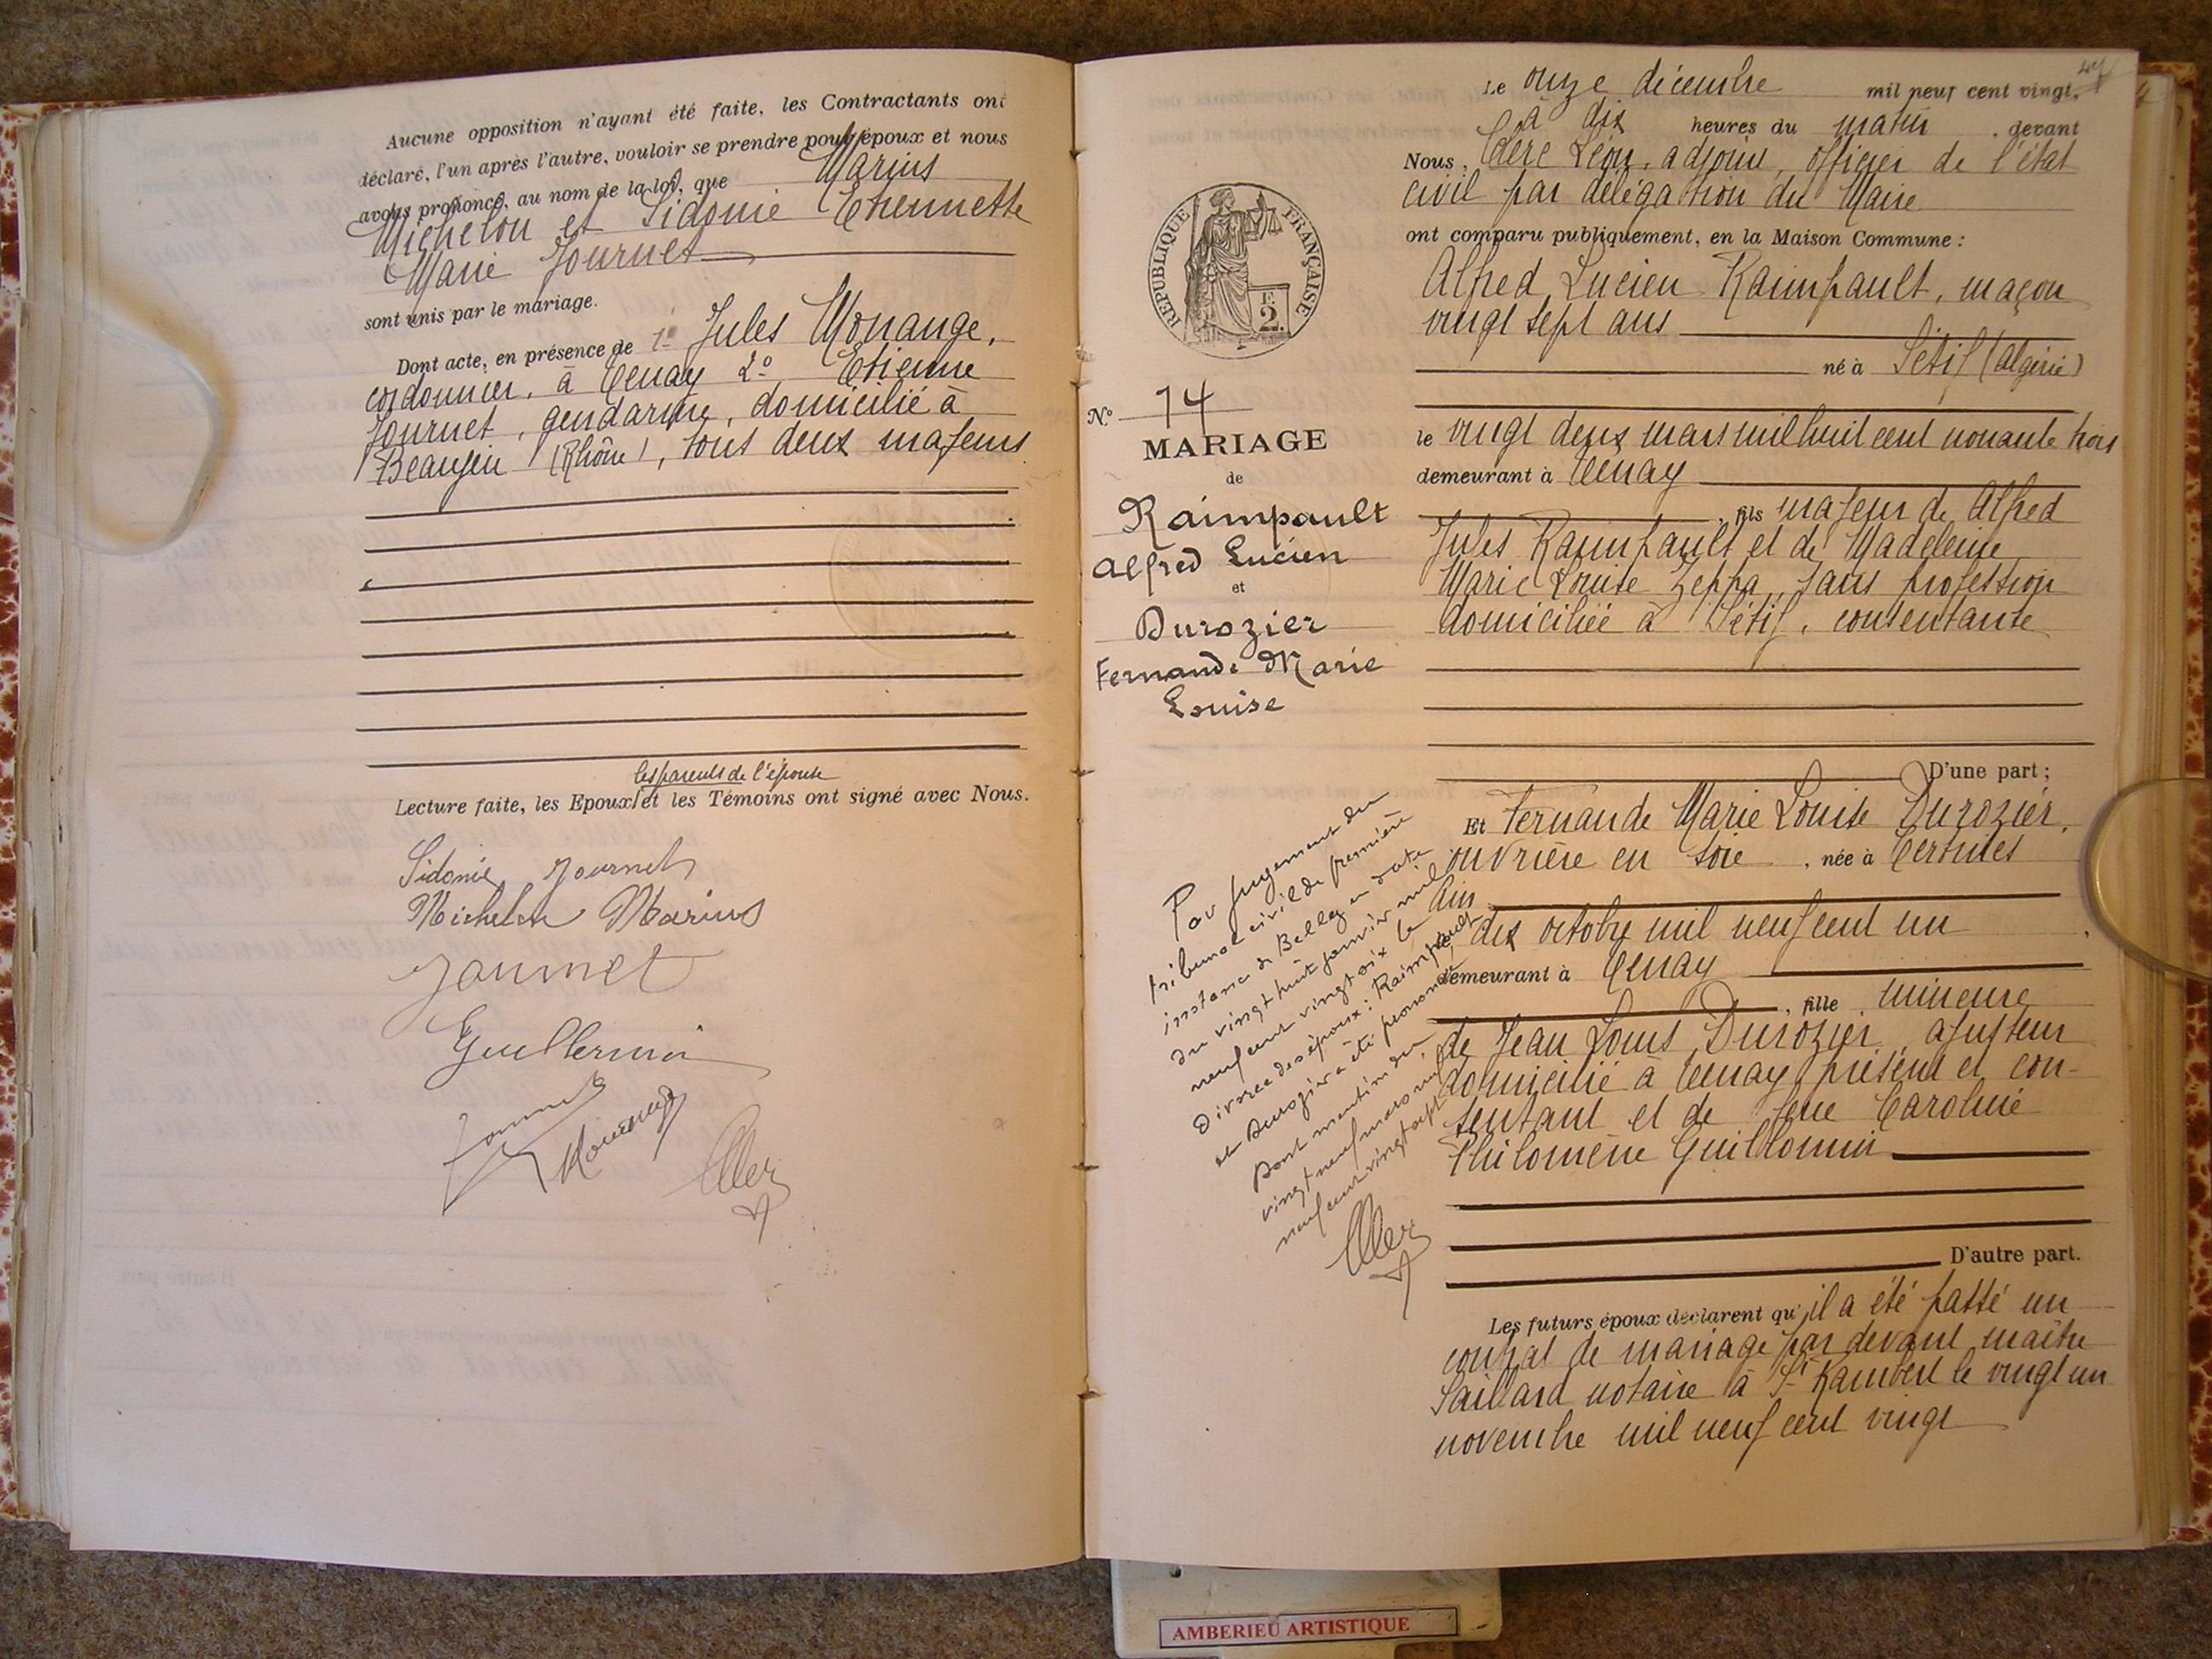 Aucune opposition n'ayant été faite, les Contractants ont
déclaré, l'un après l'autre, vouloir se prendre pour époux et nous
avons prononcé, au nom de la loi, que Marius
Michelon et Sidonie Etiennette
Marie Journet
sont unis par le mariage.
Dont acte, en présence de 1º Jules Monange,
cordonnier, à Tenay 2º Etienne
Journet, gendarme, domicilié à
Beaujeu (Rhône), tous deux majeurs
les parents de l'épouse
Lecture faite, les Epoux et les Témoins ont signé avec Nous.
Sidonie Journet
Michelon Marius
Journet
Guillermin
Journet
Monange
Le onze décembre mil neuf cent vingt,
à dix heures du matin, devant
Nous, Clerc Léon, adjoint, officier de l'état
civil par délégation du Maire
ont comparu publiquement, en la Maison Commune :
Alfred Lucien Raimpault, maçon
vingt sept ans
né à Sétif (Algérie)
le vingt deux mars mil huit cent nonante trois
demeurant à Tenay
, fils majeur de Alfred
Jules Raimpault et de Madeleine
Marie Louise Zeppa, sans profession
domiciliée à Sétif, consentante
D'une part ;
Et Fernande Marie Louise Durozier,
ouvrière en soie, née à
Ain
le dix octobre mil neuf cent un
demeurant à Tenay
, fille mineure
de Jean Louis Durozier, ajusteur
domicilié à Tenay, présent et con-
sentant et de feue Caroline
Philomène Guillomin
D'autre part.
Les futurs époux déclarent qu'il a été passé un
contrat de mariage par devant maître
Saillard notaire à St Rambert le vingt un
novembre mil neuf cent vingt
RÉPUBLIQUE FRANÇAISE
2
Nº 74
MARIAGE
de
Raimpault
Alfred Lucien
et
Durozier
Fernande Marie
Louise
Par jugement du
tribunal civil de première
instance de Belley en date
du vingt huit janvier mil
neuf cent vingt six le
divorce des époux : Raimpault
et Durozier a été prononcé
Dont mention du
vingt neuf mars mil
neuf cent vingt sept
AMBERIEU ARTISTIQUE